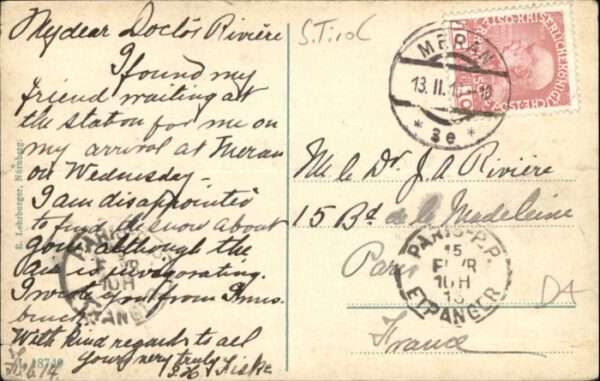 My dear Doctor Rivière
I found my
friend waiting at
the station for me on
my arrival at Meran
on Wednesday -
I am disappointed
to find the snow about
gone although the
air is invigorating.
I wrote you from Inns-
bruck
With kind regards to all
yours very truly
Fiske
E. Lehrburger, Nürnberg.
18740
S. Tirol
MERAN
13. II.
* 3e *
M. le Dr. J. A. Rivière
15 Bd de la Madeleine
Paris
France
PARIS-P.P.
15
FEVR
10H
ETRANGER
D4
PARIS
10H
ETRANGER